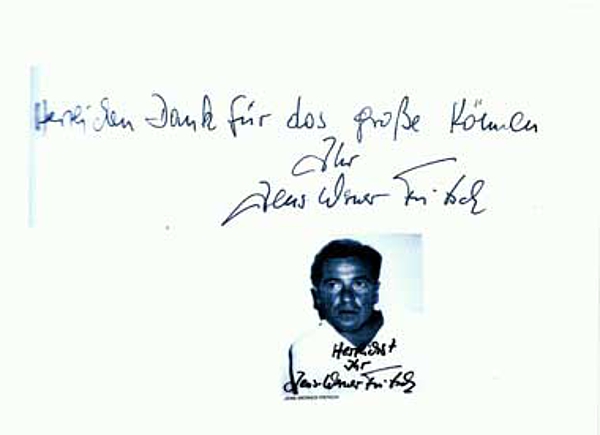 Herzlichen Dank für das große Können
Ihr
Jens Werner Fritsch
Herzlichst
Ihr
Jens Werner Fritsch
JENS-WERNER FRITSCH